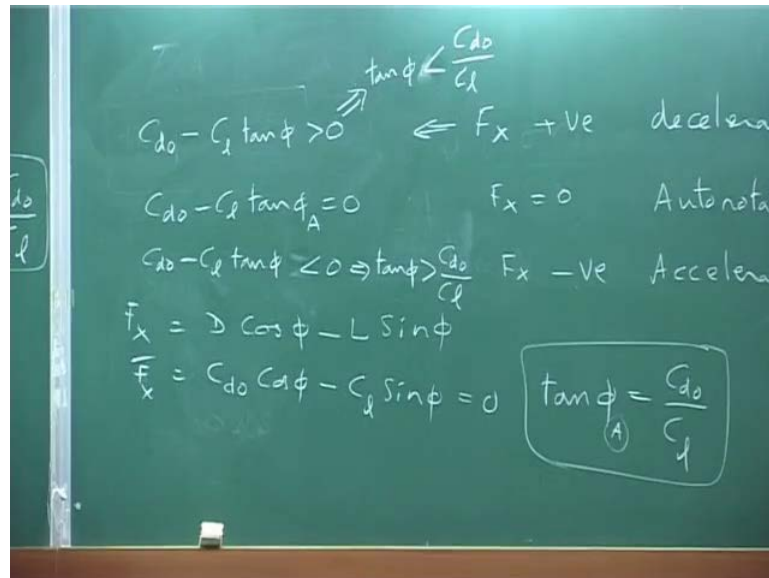 tan ϕ < C_do/C_l
C_do − C_l tan ϕ > 0 ⇐ F_x +ve decelera
C_do − C_l tan ϕ_A = 0 F_x = 0 Autorota
C_do − C_l tan ϕ < 0 ⇒ tan ϕ > C_do/C_l F_x −ve Accelera
F_x = D Cos ϕ − L Sin ϕ
F̅_x = C_do Cos ϕ − C_l Sin ϕ = 0 tan ϕ_A = C_do/C_l
do/l